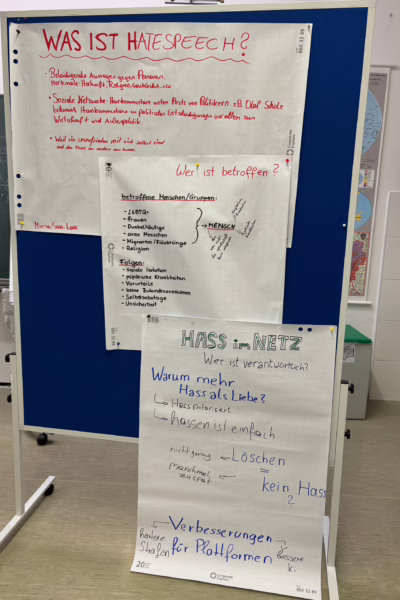 WAS IST HATESPEECH?
• Beleidigende Aussagen gegen Personen.
Merkmale: Herkunft, Religion, Geschlecht usw
• Soziale Netzwerke - Hasskommentare unter Posts von Politikern z.B Olaf Scholz
bekommt Hasskommentare zu politischen Entscheidungen vor allem zum
Wirtschaft und Außenpolitik.
• Weil sie unzufrieden mit sich selbst sind
und den Frust an andere
Wer ist betroffen?
betroffene Menschen/Gruppen:
- LGBTQ+
- Frauen
- Dunkelhäutige
- arme Menschen
- Migranten/Flüchtlinge
- Religion
→ MENSCH
Folgen:
- soziale Isolation
- psychische Krankheiten
- Vorurteile
- keine Zukunftsaussichten
- Selbstsabotage
- Unsicherheit
HASS im NETZ
Wer ist verantwortlich?
Warum mehr
Hass als Liebe?
↳ Hass polarisiert
↳ hassen ist einfach
nicht genug ← Löschen
manchmal
zu spät
=
kein Hass
?
Verbesserungen
für Plattformen
härtere
Strafen
bessere
KI
20